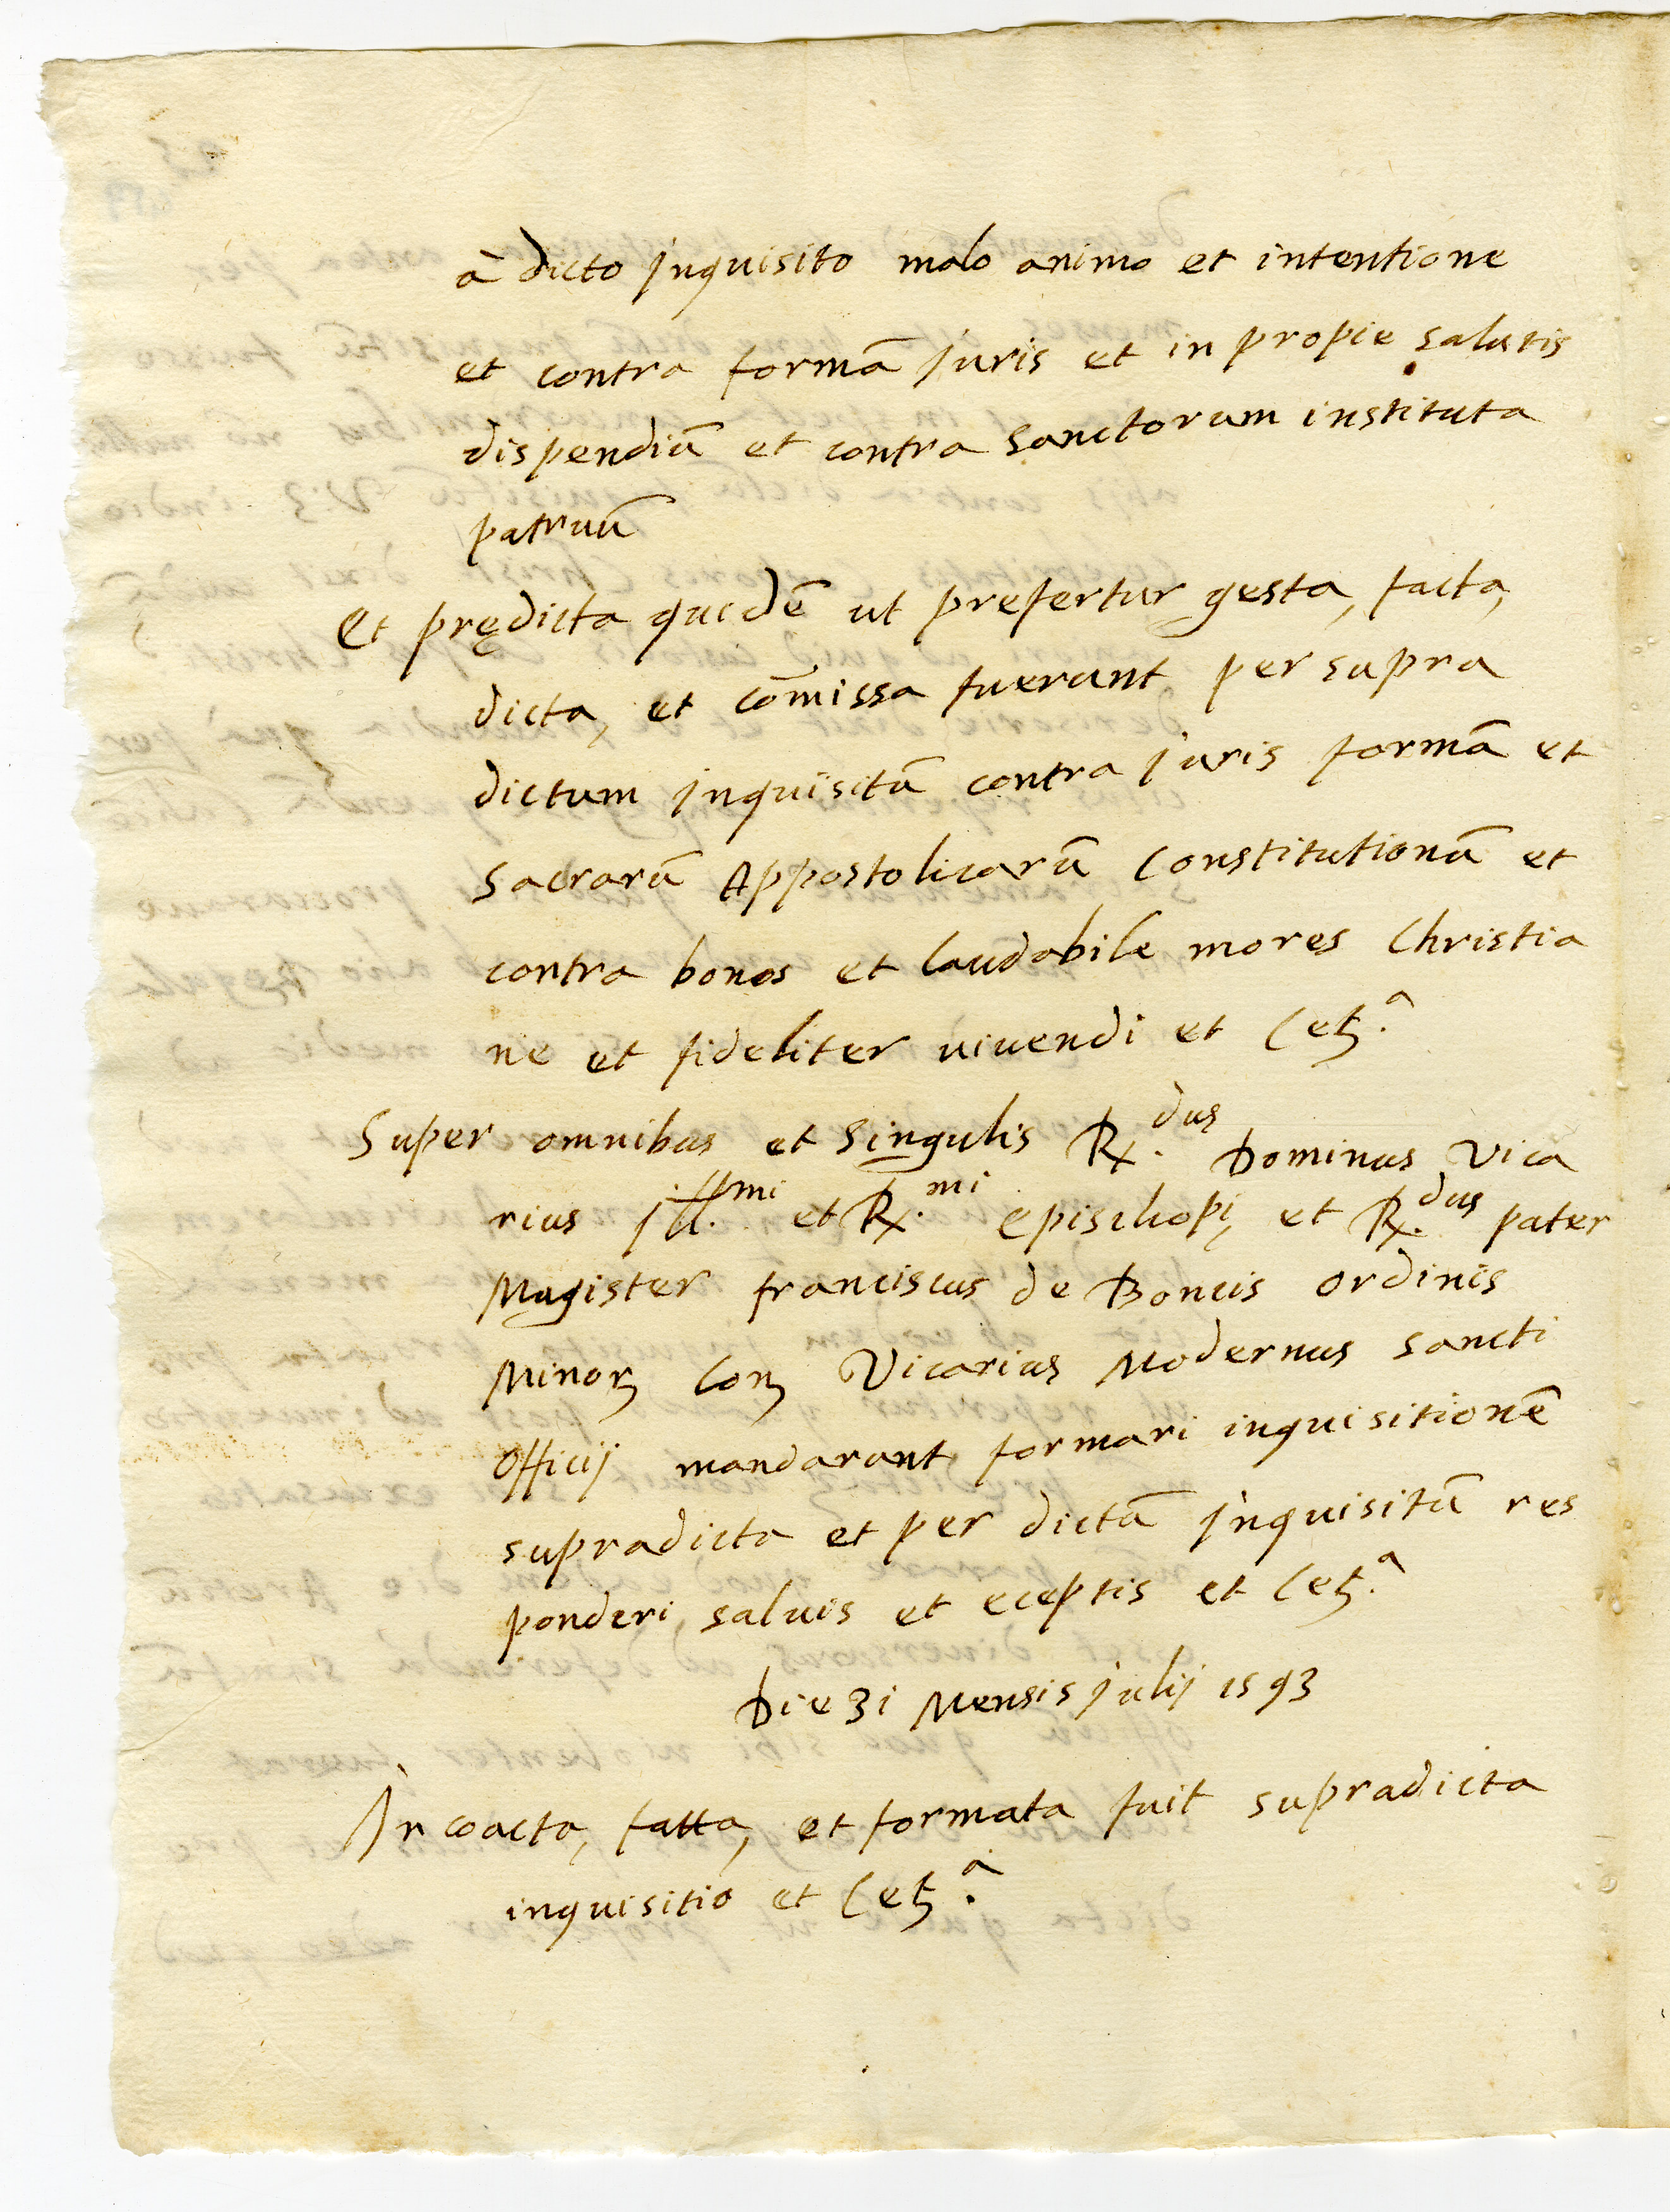 à dicto jnquisito malo animo et intentione
et contra formā juris et in propie salutis
dispendiū et contra sanctorum instituta
patruū
Et prędicta quidē ut prefertur gesta, facta,
dicta, et cōmissa fuerunt per supra
dictum jnquisitū contra juris formā et
sacrarū Appostolicarū Constitutionū et
contra bonos et laudabile mores Christia
ne et fideliter uiuendi et Cet.ᵃ
Super omnibus et singulis R.ᵈᵘˢ Dominus Vica
rius jll.ᵐⁱ et R.ᵐⁱ Epischopi, et R.ᵈᵘˢ pater
Magister franciscus de Boncis ordinis
Minorꝫ Conꝫ Vicarius Modernus sancti
officij mandarunt formari inquisitionē
supradicta et per dictū jnquisitū res
ponderi, saluis et eceptis et Cet.ᵃ
Die 31 Mensis julij 1593
Jncoacta, fatta, et formata fuit supradicta
inquisitio et Cet.ᵃ